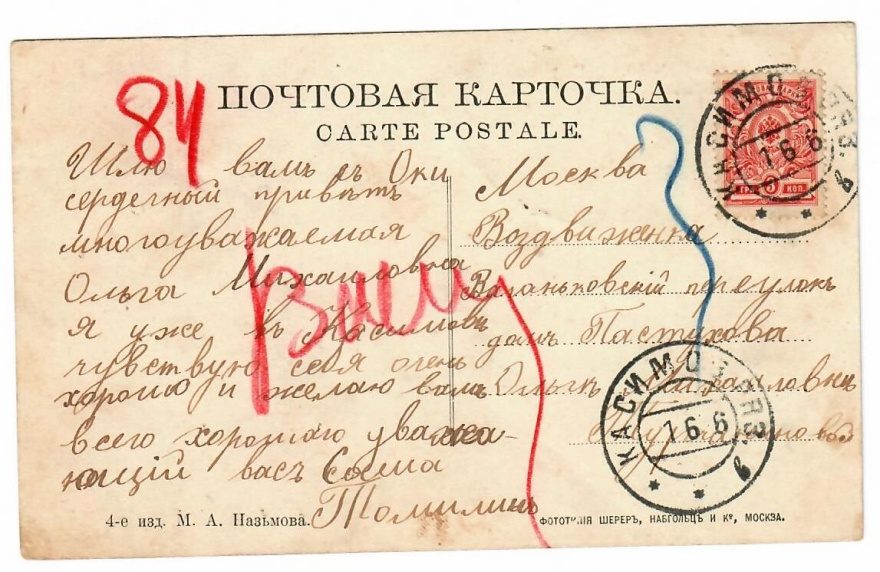 84
ПОЧТОВАЯ КАРТОЧКА.
CARTE POSTALE.
Шлю вамъ съ Оки
сердечный приветъ
многоуважаемая
Ольга Михаиловна
я уже въ Касимовъ
чувствую себя очень
хорошо и желаю вамъ
всего хорошаго уважа-
ющій васъ
Томилинъ
Москва
Воздвиженка
Ваганьковскій переулокъ
домъ Пастухова
Ольгъ Михаиловнъ
КАСИМОВЪ РЯЗ.
1 6 6
3 КОП.
КАСИМОВЪ РЯЗ.
1 6 6
4-е изд. М. А. Назьмова.
ФОТОТИПІЯ ШЕРЕРЪ, НАБГОЛЬЦЪ И Кº, МОСКВА.